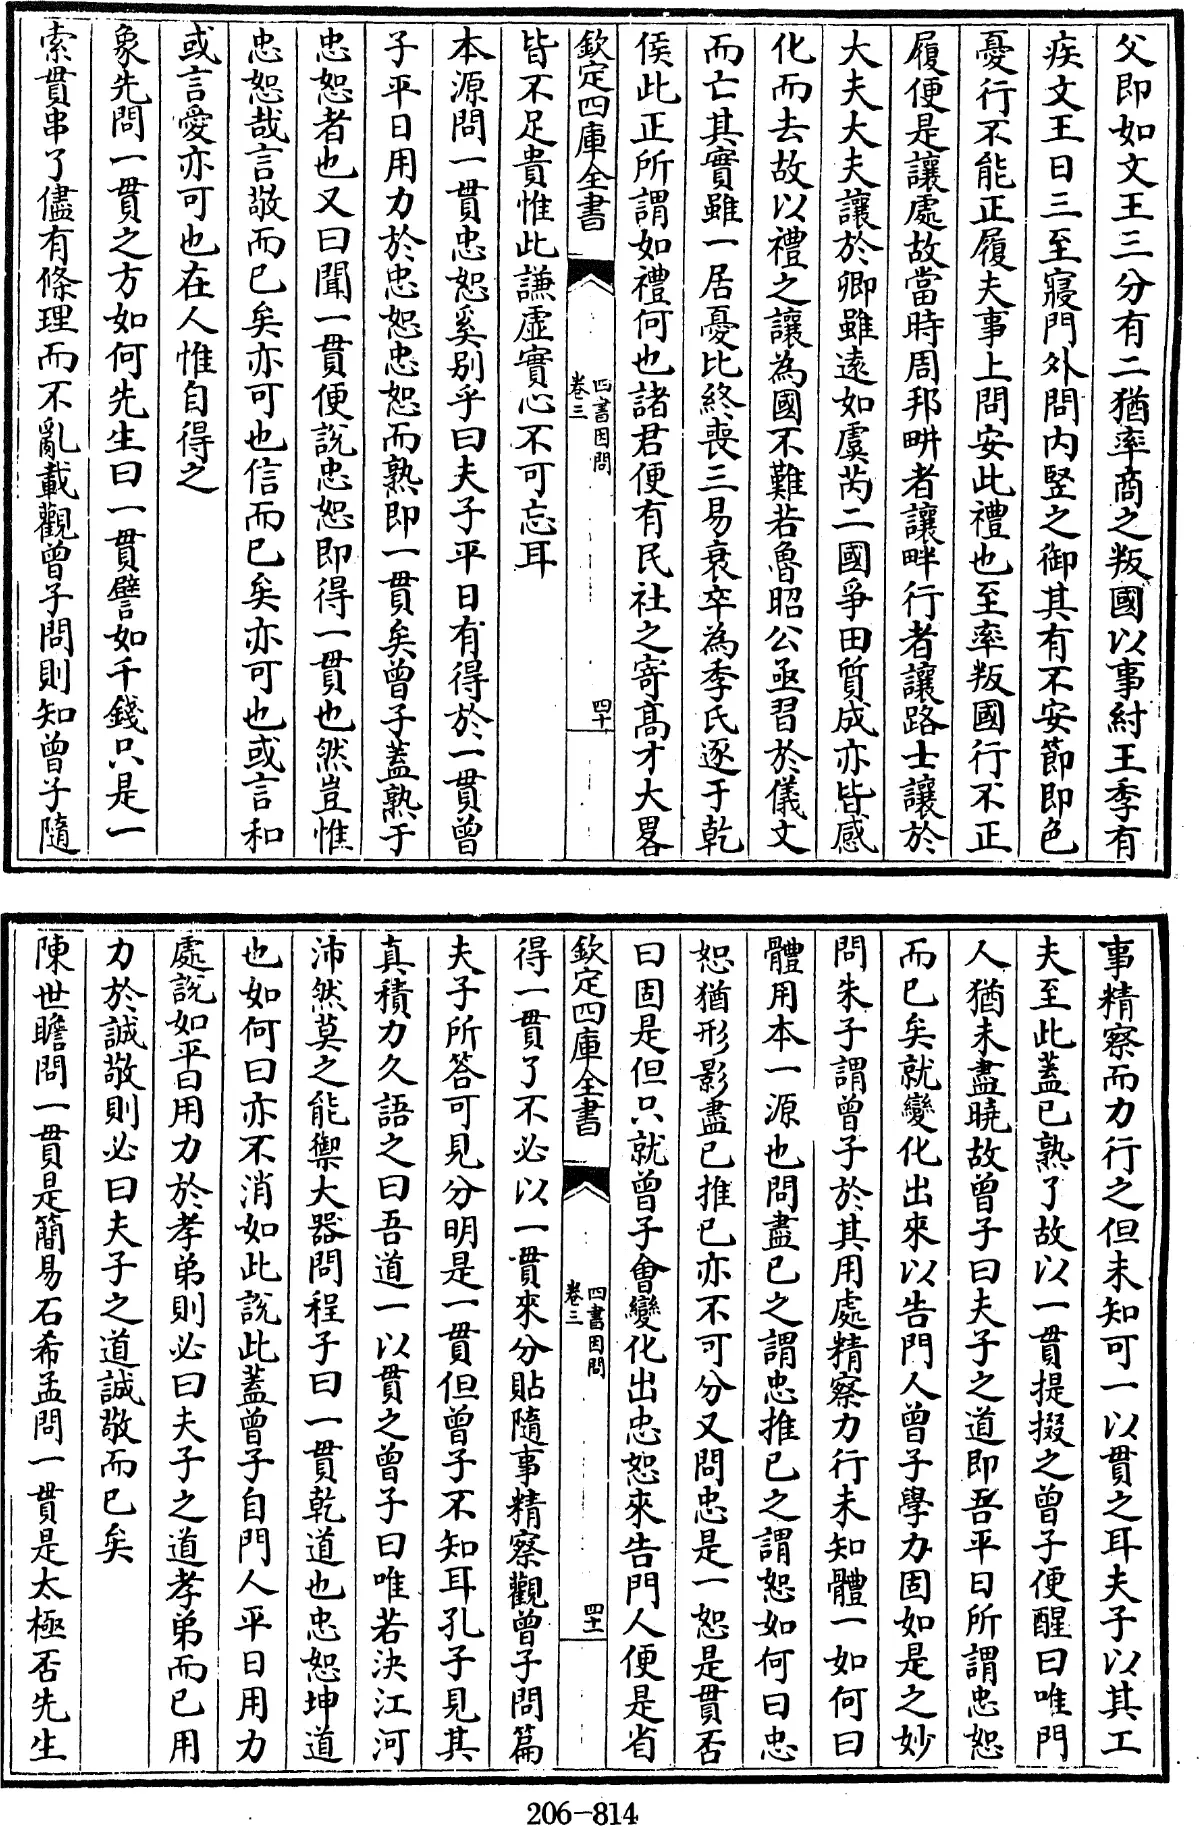 父即如文王三分有二猶率商之叛國以事紂王季有
疾文王日三至寢門外問內豎之御其有不安節即色
憂行不能正履夫事上問安此禮也至率叛國行不正
履便是讓處故當時周邦畊者讓畔行者讓路士讓於
大夫大夫讓於卿雖遠如虞芮二國爭田質成亦皆感
化而去故以禮之讓為國不難若魯昭公亟習於儀文
而亡其實雖一居憂比終喪三易衰卒為季氏逐于乾
侯此正所謂如禮何也諸君便有民社之寄高才大畧
欽定四庫全書
四書因問
卷三
四十
皆不足貴惟此謙虛實心不可忘耳
本源問一貫忠恕奚别乎曰夫子平日有得於一貫曾
子平日用力於忠恕忠恕而熟即一貫矣曾子蓋熟于
忠恕者也又曰聞一貫便說忠恕即得一貫也然豈惟
忠恕哉言敬而已矣亦可也信而已矣亦可也或言和
或言愛亦可也在人惟自得之
象先問一貫之方如何先生曰一貫譬如千錢只是一
索貫串了儘有條理而不亂載觀曾子問則知曾子隨
事精察而力行之但未知可一以貫之耳夫子以其工
夫至此蓋已熟了故以一貫提掇之曾子便醒曰唯門
人猶未盡曉故曾子曰夫子之道即吾平日所謂忠恕
而已矣就變化出來以告門人曾子學力固如是之妙
問朱子謂曾子於其用處精察力行未知體一如何曰
體用本一源也問盡已之謂忠推已之謂恕如何曰忠
恕猶形影盡已推已亦不可分又問忠是一恕是貫否
曰固是但只就曾子會變化出忠恕來告門人便是省
欽定四庫全書
四書因問
卷三
四十一
得一貫了不必以一貫來分貼隨事精察觀曾子問篇
夫子所答可見分明是一貫但曾子不知耳孔子見其
真積力久語之曰吾道一以貫之曾子曰唯若決江河
沛然莫之能禦大器問程子曰一貫乾道也忠恕坤道
也如何曰亦不消如此說此蓋曾子自門人平日用力
處說如平日用力於孝弟則必曰夫子之道孝弟而已用
力於誠敬則必曰夫子之道誠敬而已矣
陳世瞻問一貫是簡易石希孟問一貫是太極否先生
206-814